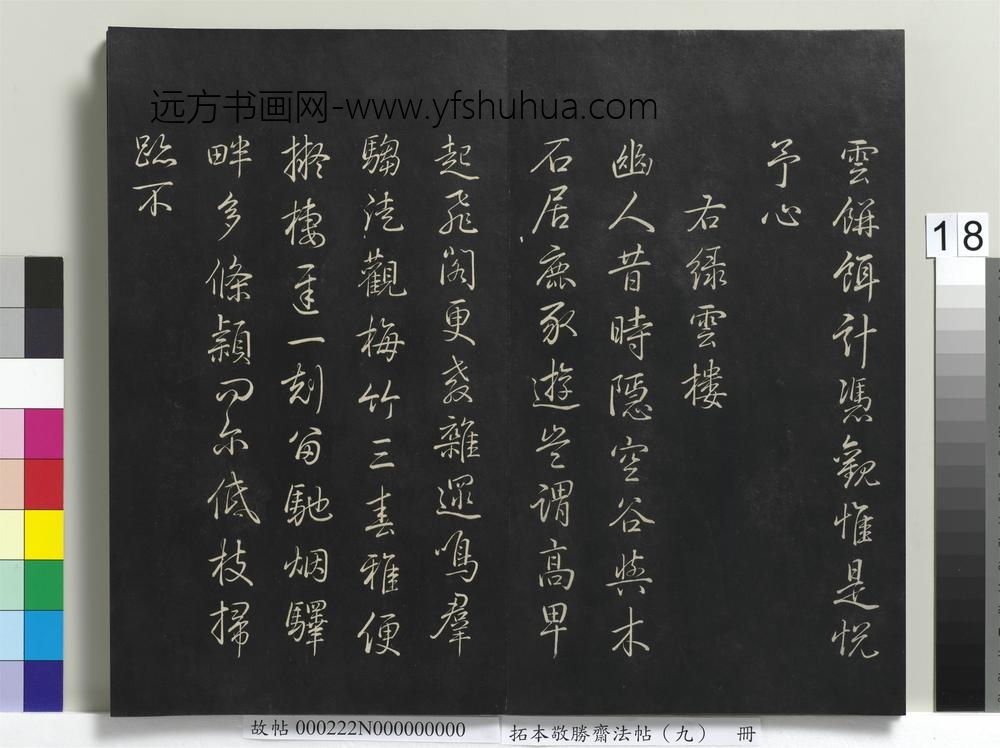 远方书画网-www.yfshuhua.com
雲餅餌計憑觀惟是悅
予心
右綠雲樓
幽人昔時隱空谷與木
石居鹿豕遊豈謂高卑
起飛閣更教雜遝鳴羣
騶洼觀梅竹三春雅便
擬棲遲一刻留馳烟驛
畔多條穎叩尔低枝掃
跡不
18
故帖 000222N000000000
拓本敬勝齋法帖（九） 冊